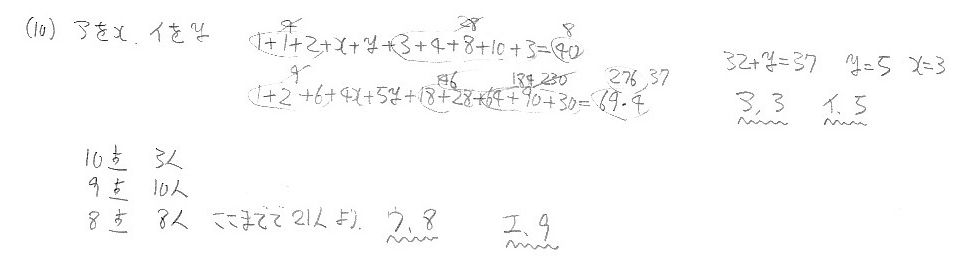 (10) アをx、イをy
1+1+2+x+y+3+4+8+10+3=40 8
4 28
32+y=37 y=5 x=3
1+2+6+4x+5y+18+28+64+90+30=69.4
9 46 184 230 276 37
ア、3 イ、5
10点 3人
9点 10人
8点 8人 ここまでで21人より、ウ、8 エ、9